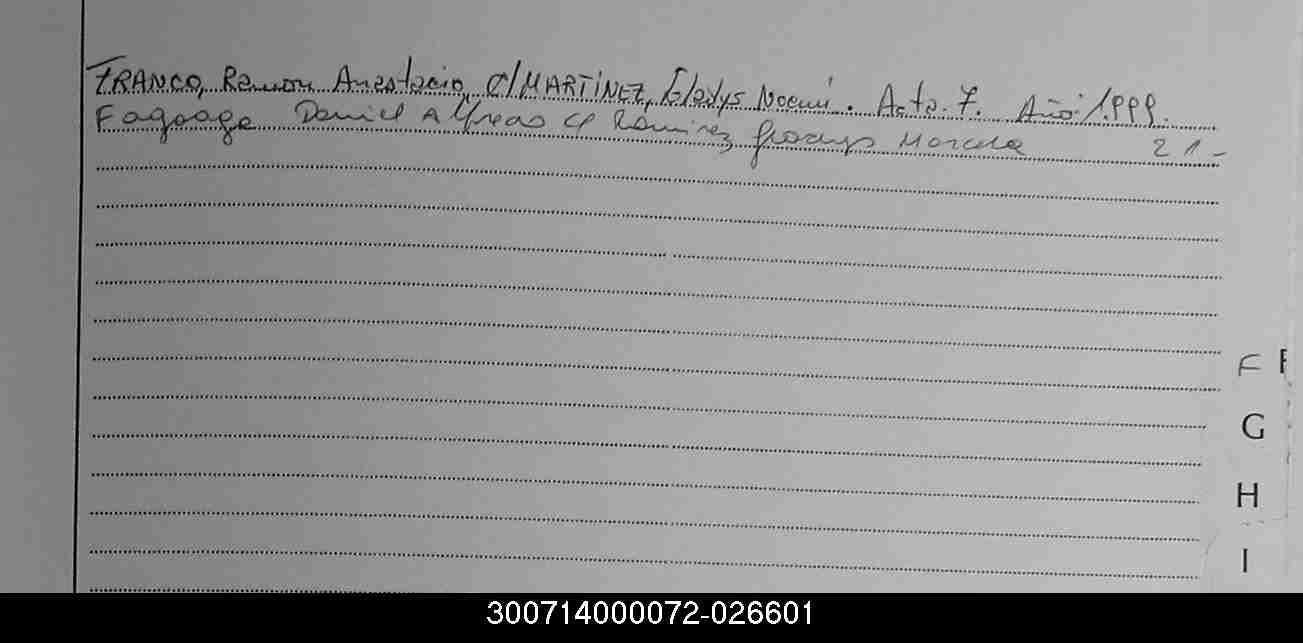 FRANCO, Ramon Anastacio, C/ MARTÍNEZ, Gladys Noemi. Acta. 7. Año: 1.999.
Fagoaga Daniel Alfredo c/ Ramirez Gladys Marcela 21-
F
G
H
I
300714000072-026601